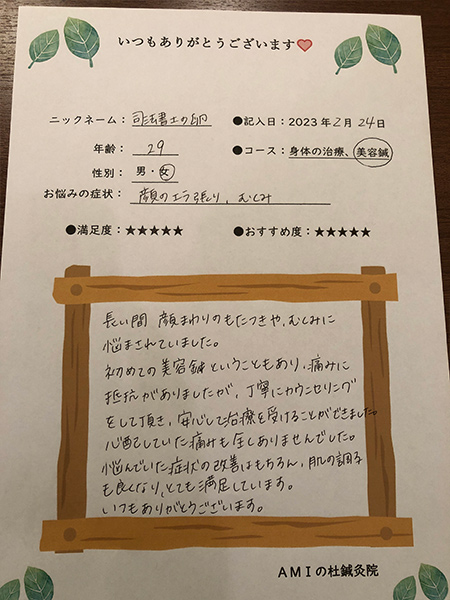 いつもありがとうございます❤
ニックネーム：司法書士の卵 ●記入日：2023年2月24日
年齢：29 ●コース：身体の治療、美容鍼
性別：男・女
お悩みの症状：顔のエラ張り、むくみ
●満足度：★★★★★ ●おすすめ度：★★★★★
長い間 顔まわりのもたつきや、むくみに
悩まされていました。
初めての美容鍼ということもあり、痛みに
抵抗がありましたが、丁寧にカウンセリング
をして頂き、安心して治療を受けることができました。
心配していた痛みも全くありませんでした。
悩んでいた症状の改善はもちろん、肌の調子
も良くなり、とても満足しています。
いつもありがとうございます。
AMIの杜鍼灸院